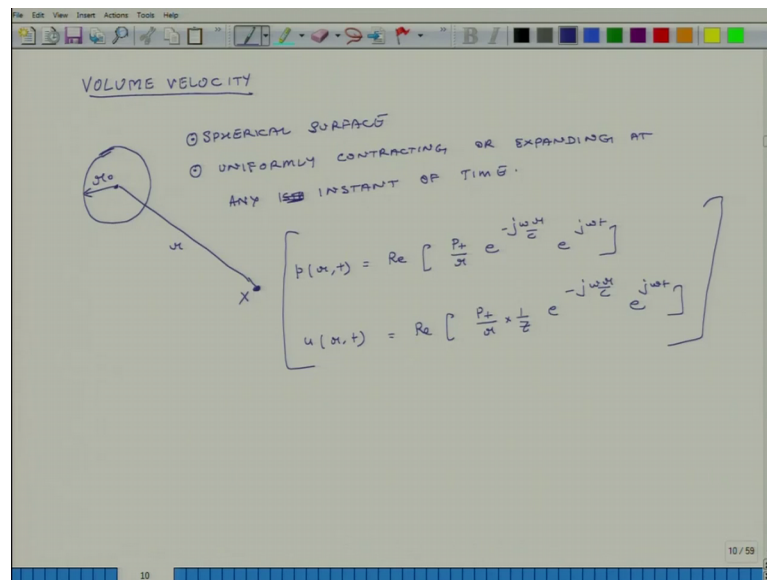 File Edit View Insert Actions Tools Help
VOLUME VELOCITY
⊙ SPHERICAL SURFACE
⊙ UNIFORMLY CONTRACTING OR EXPANDING AT
ANY INSTANT OF TIME.
r₀
r
X
p(r,t) = Re [ P₊/r e^(-jωr/c) e^(jωt) ]
u(r,t) = Re [ P₊/r × 1/Z e^(-jωr/c) e^(jωt) ]
10 / 59
10